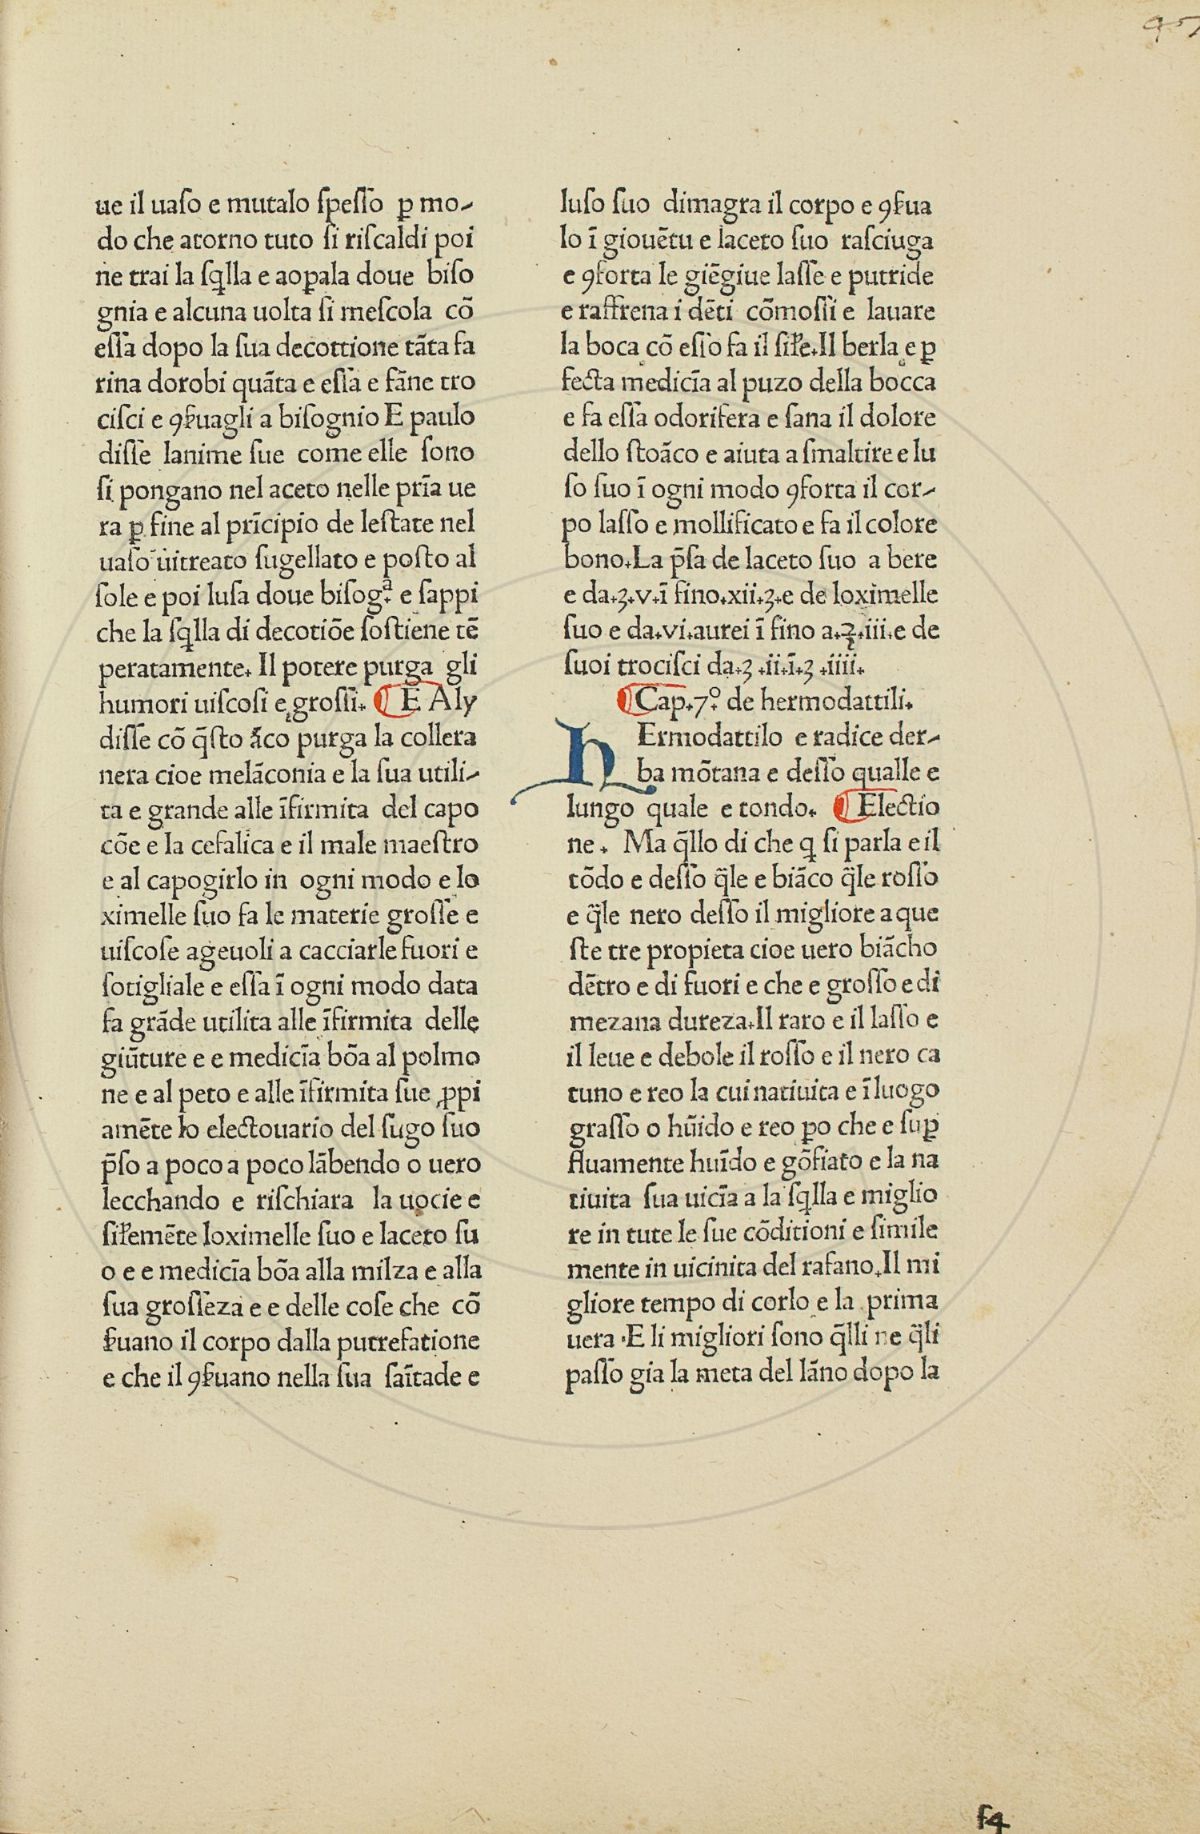 45
ue il uaſo e mutalo ſpeſſo ꝑ mo-
do che atorno tuto ſi riſcaldi poi
ne trai la ſq̄lla e aoꝑala doue biſo
gnia e alcuna uolta ſi meſcola cō
eſſa dopo la ſua decottione tāta fa
rina dorobi quāta e eſſa e fāne tro
ciſci e ꝯẜuagli a biſognio E paulo
diſſe lanime ſue come elle ſono
ſi pongano nel aceto nelle prīa ue
ra ꝑ fine al prīcipio de leſtate nel
uaſo uitreato ſugellato e poſto al
ſole e poi luſa doue biſog.ͣ e ſappi
che la ſq̄lla di decotiōe ſoſtiene tē
peratamente. Il potere purga gli
humori uiſcoſi e groſſi. ¶ E Aly
diſſe cō q̄ſto āco purga la collera
nera cioe melāconia e la ſua utili-
ta e grande alle īfirmita del capo
cōe e la cefalica e il male maeſtro
e al capogirlo in ogni modo e lo
ximelle ſuo fa le materie groſſe e
uiſcoſe ageuoli a cacciarle fuori e
ſotigliale e eſſa ī ogni modo data
fa grāde utilita alle īfirmita delle
giūture e e medicīa bōa al polmo
ne e al peto e alle īfirmita ſue ꝓpi
amēte lo electouario del ſugo ſuo
p̄ſo a poco a poco lābendo o uero
lecchando e riſchiara la uocie e
ſiƚemēte loximelle ſuo e laceto ſu
o e e medicīa bōa alla milza e alla
ſua groſſeza e e delle coſe che cō
ẜuano il corpo dalla putrefatione
e che il ꝯẜuano nella ſua ſaītade e
luſo ſuo dimagra il corpo e ꝯẜua
lo ī giouētu e laceto ſuo raſciuga
e ꝯforta le giēgiue laſſe e putride
e raffrena i dēti cōmoſſi e lauare
la boca cō eſſo fa il ſiƚe. Il berla e ꝑ
fecta medicīa al puzo della bocca
e fa eſſa odorifera e ſana il dolore
dello ſtoāco e aiuta a ſmaltire e lu
ſo ſuo ī ogni modo ꝯforta il cor-
po laſſo e mollificato e fa il colore
bono. La p̄ſa de laceto ſuo a bere
e da.ʒ.v.ī fino.xii.ʒ.e de loximelle
ſuo e da.vi.aurei ī fino a.℥.iii.e de
ſuoi trociſci da.ʒ.ii.ī.ʒ.iiii.
¶ Cap.7.° de hermodattili.
hErmodattilo e radice der-
ba mōtana e deſſo qualle e
lungo quale e tondo. ¶ Electio
ne. Ma q̄llo di che q ſi parla e il
tōdo e deſſo q̄le e biāco q̄le roſſo
e q̄le nero deſſo il migliore a que
ſte tre propieta cioe uero biācho
dētro e di fuori e che e groſſo e di
mezana dureza. Il raro e il laſſo e
il leue e debole il roſſo e il nero ca
tuno e reo la cui natiuita e ī luogo
graſſo o hūido e reo ꝑo che e ſuꝑ
fluamente huīdo e gōfiato e la na
tiuita ſua uicīa a la ſq̄lla e miglio
re in tute le ſue cōditioni e ſimile
mente in uicinita del rafano. Il mi
gliore tempo di corlo e la prima
uera. E li migliori ſono q̄lli ne q̄li
paſſo gia la meta del lāno dopo la
f4